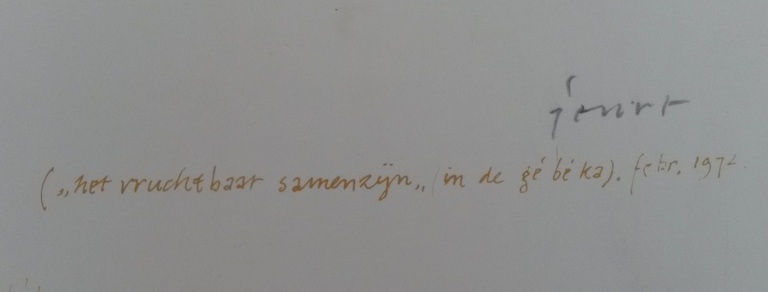 („het vruchtbaar samenzijn„ (in de gé bé ka). febr. 1972.